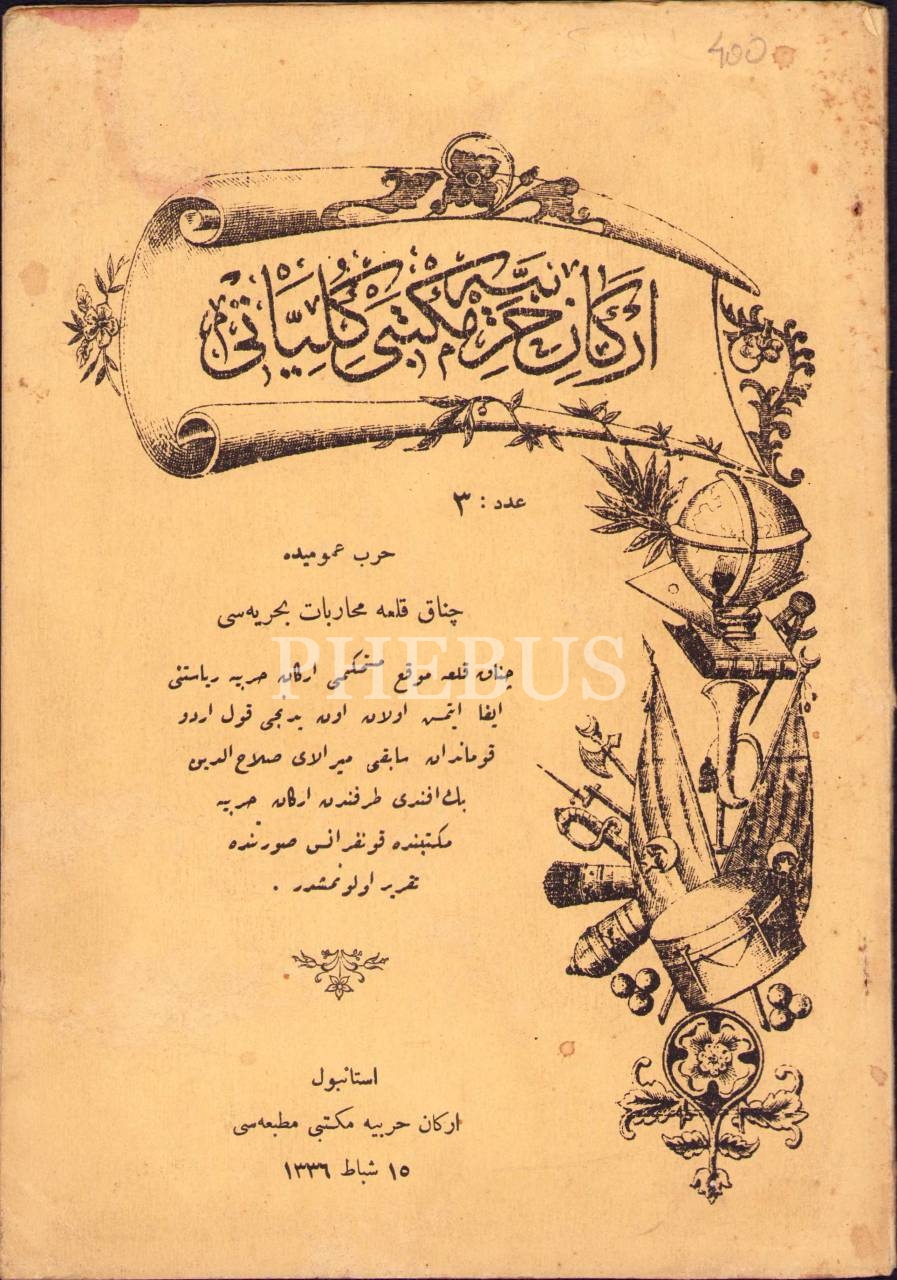 400
اركان حربيه مكتبى كلياتى
عدد : ٣
حرب عموميده
چناق قلعه محاربات بحريه‌سى
PHEBUS
چناق قلعه موقع مستحكمى اركان حربيه رياستنى
ايفا ايتمش اولان اون يدنجى قول اردو
قوماندان سابقى ميرالاى صلاح الدين
بك افندى طرفندن اركان حربيه
مكتبنده قونفرانس صورتنده
تقرير اولونمشدر .
استانبول
اركان حربيه مكتبى مطبعه‌سى
١٥ شباط ١٣٣٦